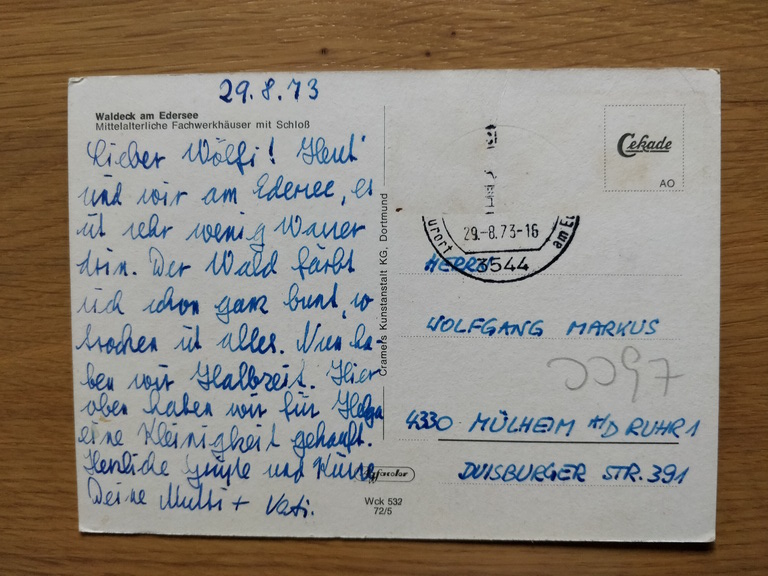 29.8.73
Waldeck am Edersee
Mittelalterliche Fachwerkhäuser mit Schloß
Lieber Wölfi! Heut'
sind wir am Edersee, es
ist sehr wenig Wasser
drin. Der Wald färbt
sich schon ganz bunt, so
trocken ist alles. Nun ha-
ben wir Halbzeit. Hier
oben haben wir für Helga
eine Kleinigkeit gekauft.
Herzliche Grüße und Küsse
Deine Mutti + Vati.
Cramers Kunstanstalt KG, Dortmund
Wck 532
72/5
Cekade
AO
urort
29.-8.73-16
am E
3544
HERRN
WOLFGANG MARKUS
4330 MÜLHEIM A/D RUHR 1
DUISBURGER STR. 391